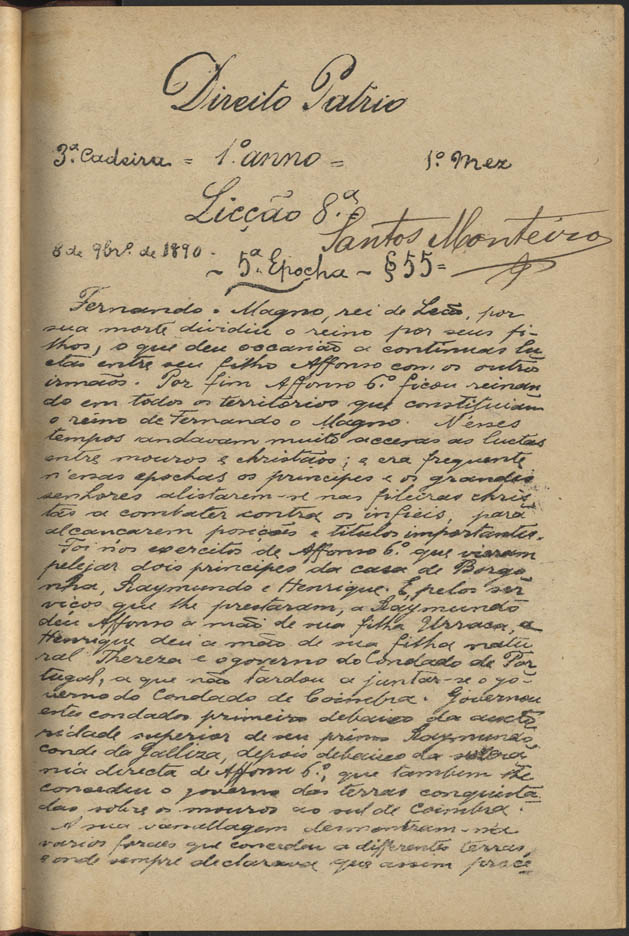 Direito Patrio
3ª Cadeira = 1º anno = 1º Mez
Licção 8ª
Santos Monteiro
8 de 9brº de 1890.
~ 5ª Epocha ~ § 55 =
Fernando o Magno, rei de Leão, por
sua morte dividiu o reino por seus fi-
lhos, o que deu occasião a continuas lu
ctas entre seu filho Affonso com os outros
irmãos. Por fim Affonso 6º ficou reinan
do em todos os territórios que constituiam
o reino de Fernando o Magno. N'esses
tempos andavam muito accesas as luctas
entre mouros e christãos; e era frequente
n'essas epochas os principes e os grandes
senhores alistarem-se nas fileiras chris
tãs a combater contra os infieis, para
alcancarem posições e titulos importantes.
Foi nos exercitos de Affonso 6º que vieram
pelejar dois principes da casa de Borgo
nha, Raymundo e Henrique. E, pelos ser
viços que lhe prestaram, a Raymundo
deu Affonso a mão de sua filha Urraca, a
Henrique deu a mão de sua filha natu
ral Thereza e o governo do Condado de Por
tugal, a que não tardou a juntar-se o go-
verno do Condado de Coimbra. Governou
estes condados primeiro debaixo da aucto
ridade superior de seu primo Raymundo
conde da Galliza, depois debaixo da sobera
nia directa de Affonso 6º, que tambem lhe
concedeu o governo das terras conquista
das sobre os mouros ao sul de Coimbra.
A sua vassallagem demonstram-na
varios foraes que concedeu a differentes terras,
e onde sempre declarava que assim proce